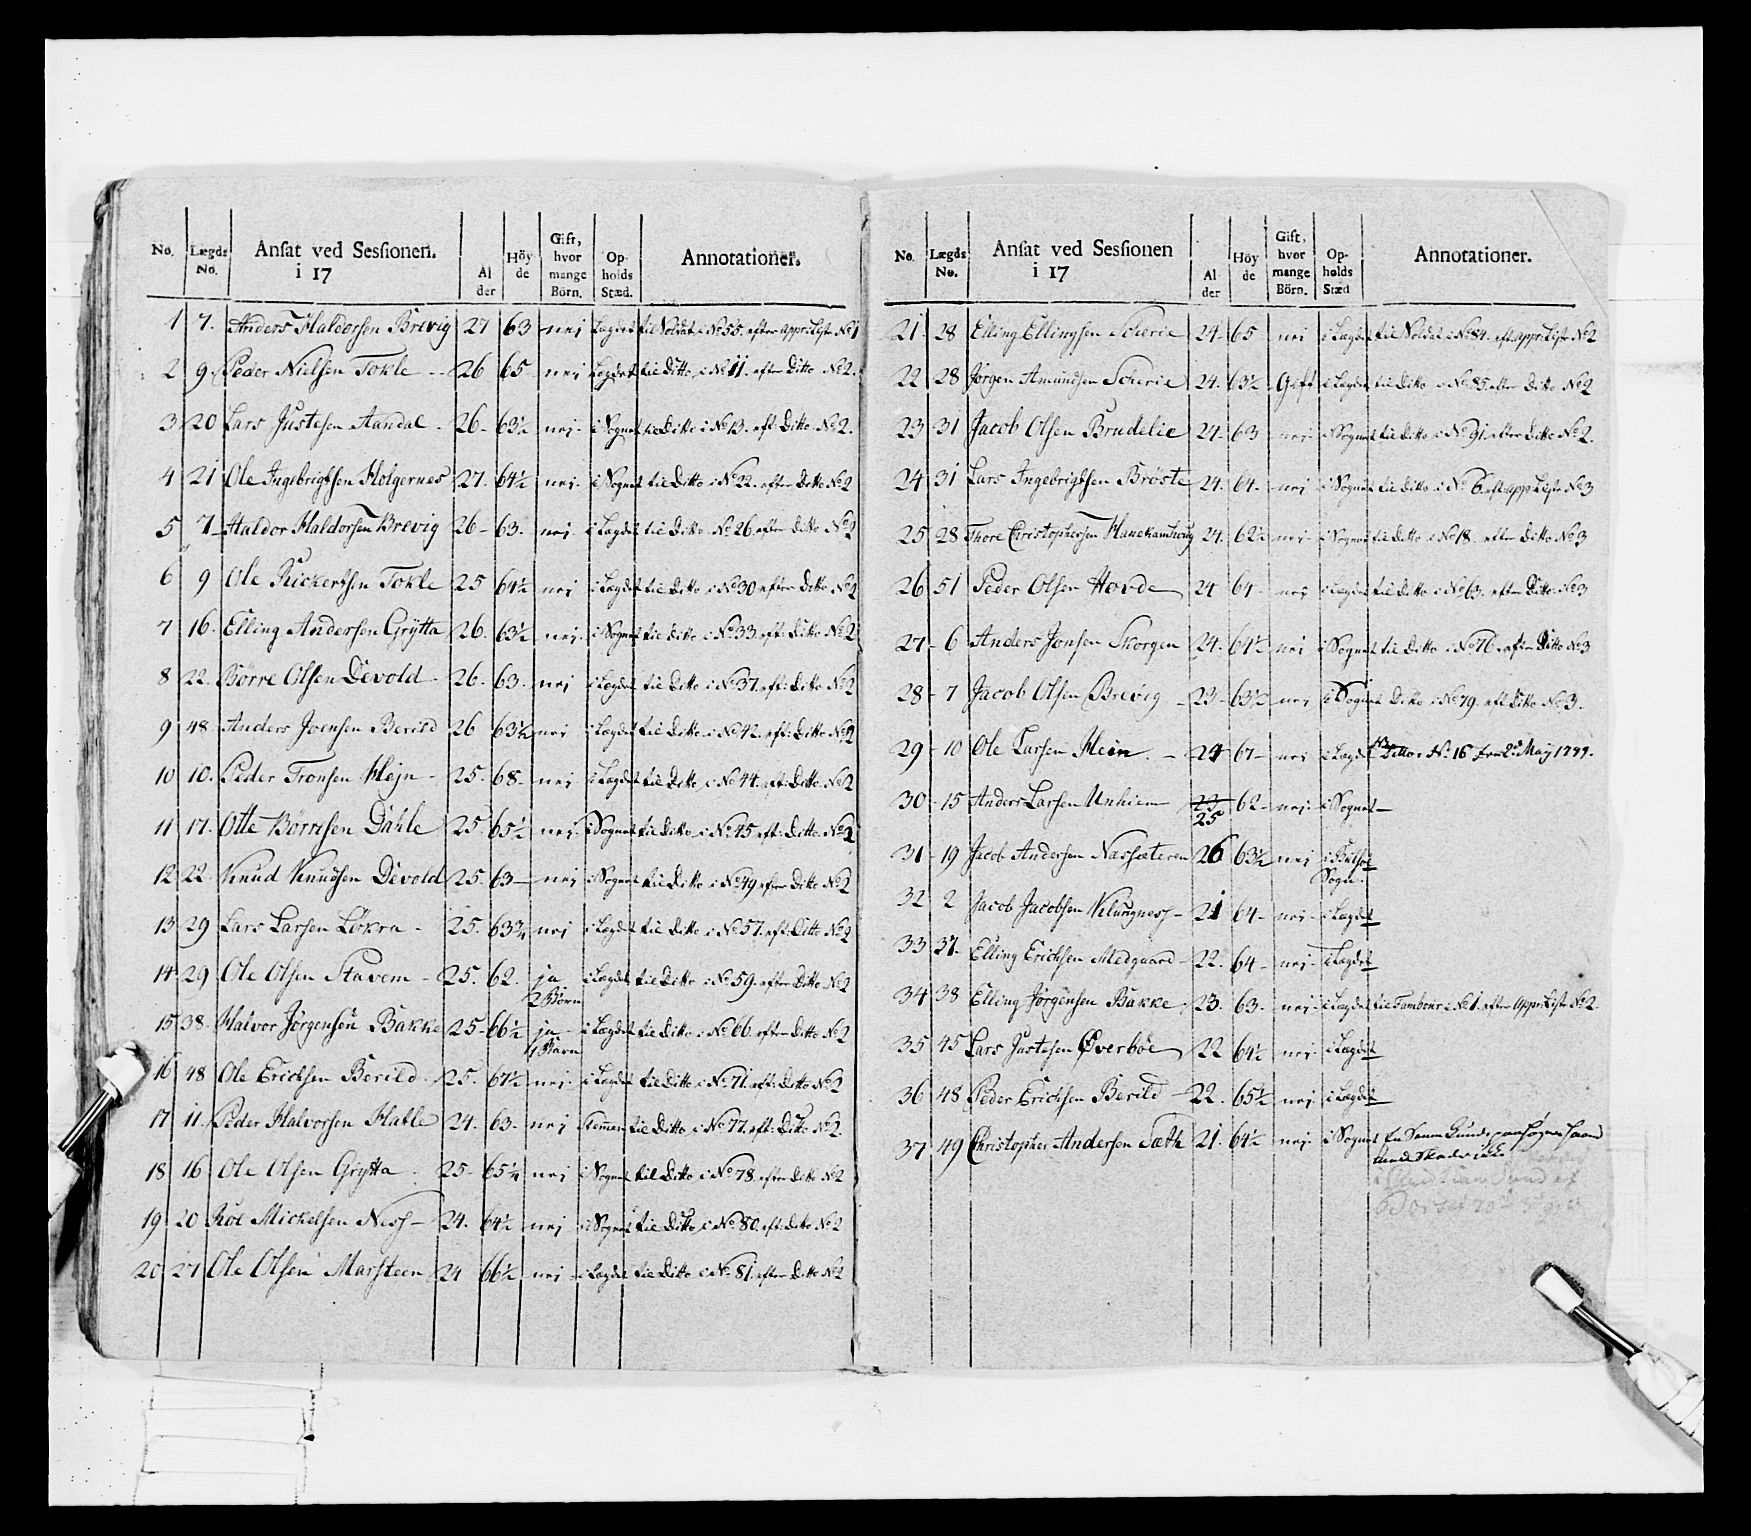 No. Lægds No. Ansat ved Sessionen. i 17 Al der Höy de Gift, hvor mange Börn. Op- holds Stæd. Annotationer.
1 7. Anders Haldorsen Brevig 27 63 nei Lægdet til Soldat i No 55. efter App: Liste No 1
2 9. Peder Nielsen Tokle 26 65 nei Lægdet til Ditto i No 11. efter Ditto No 2.
3 20 Lars Justesen Aandal 26 63½ nei i Sognet til Ditto i No 13. eft Ditto No 2.
4 21 Ole Ingebrigtsen Holgernes 27. 64½ nei i Sognet til Ditto i No 22. efter Ditto No 2
5 7 Haldor Haldorsen Brevig 26 63. nei i Lægdet til Ditto No 26. efter Ditto No 2
6 9 Ole Rickertsen Tokle 25 64½ nei i Lægdet til Ditto i No 30 efter Ditto No 2
7 16. Elling Andersen Grytta 26. 63½ nei i Sognet til Ditto i No 33. eft: Ditto No 2
8 22. Børre Olsen Devold 26. 63. nei i Lægdet til Ditto i No 37. eft: Ditto No 2
9 48 Anders Joensen Berild 26 63½ nei i Lægdet til Ditto i No 42. eft: Ditto No 2
10 10. Peder Tronsen Hejn 25. 68. nei i Lægdet til Ditto i No 44. eft: Ditto No 2
11 17. Otte Børresen Dahle 25 65½ nei i Sognet til Ditto i No 45 eft: Ditto No 2
12 22 Knud Knudsen Devold 25. 63 nei i Sognet til Ditto i No 49 efter Ditto No 2
13 29 Lars Larsen Løkra 25. 63¾ nei i Lægdet til Ditto i No 57. eft: Ditto No 2
14 29 Ole Olsen Stavem 25. 62. ja 2 Børn i Lægdet til Ditto i No 59. efter Ditto No 2
15 38. Halvor Jørgensen Bakke 25 66½ ja 1 Barn i Lægdet til Ditto i No 66. efter Ditto No 2
16 48 Ole Erichsen Berild 25. 67½ nei i Lægdet til Ditto i No 71. eft: Ditto No 2
17 11. Peder Halvorsen Halle 24. 63. nei til Ditto i No 77. eft: Ditto No 2.
18 16 Ole Olsen Grytta 25 65¼ nei i Sognet til Ditto i No 78. efter Ditto No 2
19 20 Roe Mickelsen Ness 24. 64½ nei i Sognet til Ditto i No 80. eft: Ditto No 2
20 27 Ole Olsen Marsteen 24 66½ nei i Lægdet til Ditto i No 81. efter Ditto No 2
No. Lægds No. Ansat ved Sessionen i 17 Al der Höy de Gift, hvor mange Börn. Op- holds Stæd Annotationer.
21 28 Elling Ellingsen Scherie 24. 65 nei i Lægdet til Soldat i No 84. eft App: Liste No 2
22 28 Jørgen Amundsen Scherie 24. 63½ Gift i Lægdet til Ditto i No 85. efter Ditto No 2
23 31 Jacob Olsen Brudelie 24. 63 nei i Sognet til Ditto i No 91. efter Ditto No 2.
24 31 Lars Ingebrigtsen Brøste 24. 64. nei i Sognet til Ditto i No 6. eft App Liste No 3
25 28 Thore Christophersen Hanekamhoug 24. 62½ nei i Sognet til Ditto i No 18. efter Ditto No 3
26 51 Peder Olsen Horde 24 64 nei i Lægdet til Ditto i No 63. efter Ditto No 3
27 6 Anders Jonsen Skorgen 24. 64½ nei i Sognet til Ditto i No 76. efter Ditto No 3
28 7 Jacob Olsen Brevig 23 63½ nei i Sognet Ditto i No 79. eft Ditto No 3.
29 10 Ole Larsen Hein 24 67 nei i Lægdet Ditto i No 16 fra 2d May 1799.
30 15 Anders Larsen Unhiem 23 25 62 nei i Sognet
31 19 Jacob Andersen Nassæteren 26 63½ nei i Sogn
32 2 Jacob Jacobsen Velungness 21 64 nei i Lægdet
33 37. Elling Erichsen Medgaard 22. 64 nei i Lægdet
34 38 Elling Jørgensen Bakke 23. 63. nei i Lægdet til Tambour i No 1. efter App: Liste No 2.
35 45 Lars Justesen Øverbøe 22 64½ nei i Lægdet
36 48 Peder Erichsen Berild 22. 65½ nei i Lægdet
37 49 Christopher Andersen Sæth 21. 64½ nei i Sognet